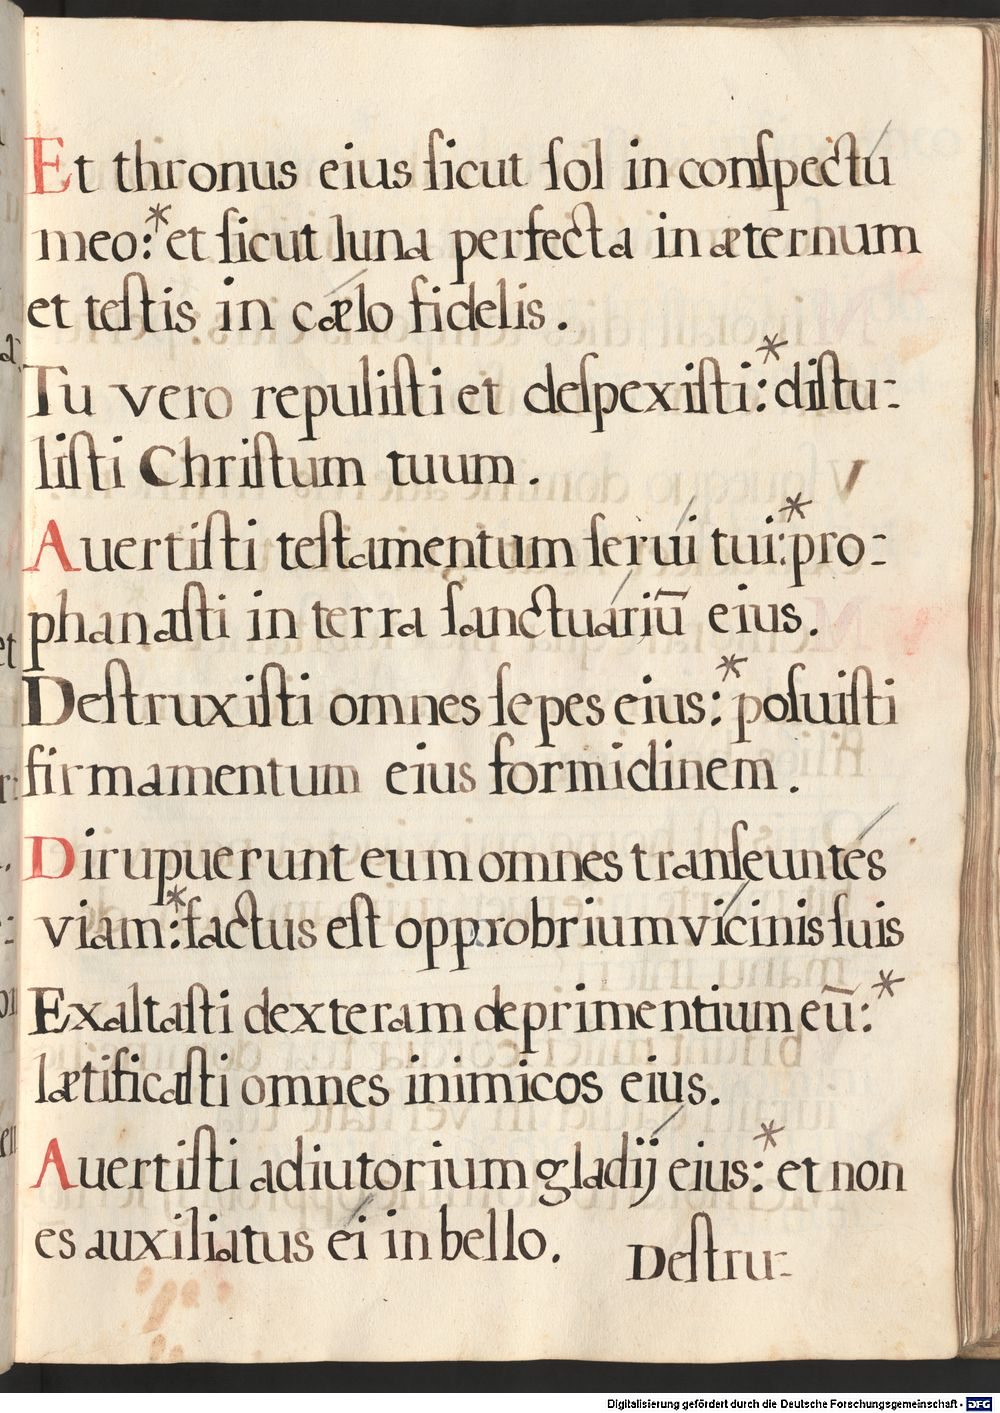 Et thronus eius ſicut ſol in conſpectu
meo:* et ſicut luna perfecta in æternum
et teſtis in cælo fidelis.
Tu vero repuliſti et deſpexiſti:* diſtu-
liſti Chriſtum tuum.
Auertiſti teſtamentum ſerui tui:* pro-
phanaſti in terra ſanctuáriū eius.
Deſtruxiſti omnes ſepes eius:* poſuiſti
firmamentum eius formidinem.
Dirupuerunt eum omnes tranſeuntes
viam:* factus eſt opprobrium vicinis ſuis
Exaltaſti dexteram deprimentium eū:*
lætificaſti omnes inimicos eius.
Auertiſti adiutorium gladij eius:* et non
es auxiliatus ei in bello.
Deſtru-
Digitalisierung gefördert durch die Deutsche Forschungsgemeinschaft - DFG